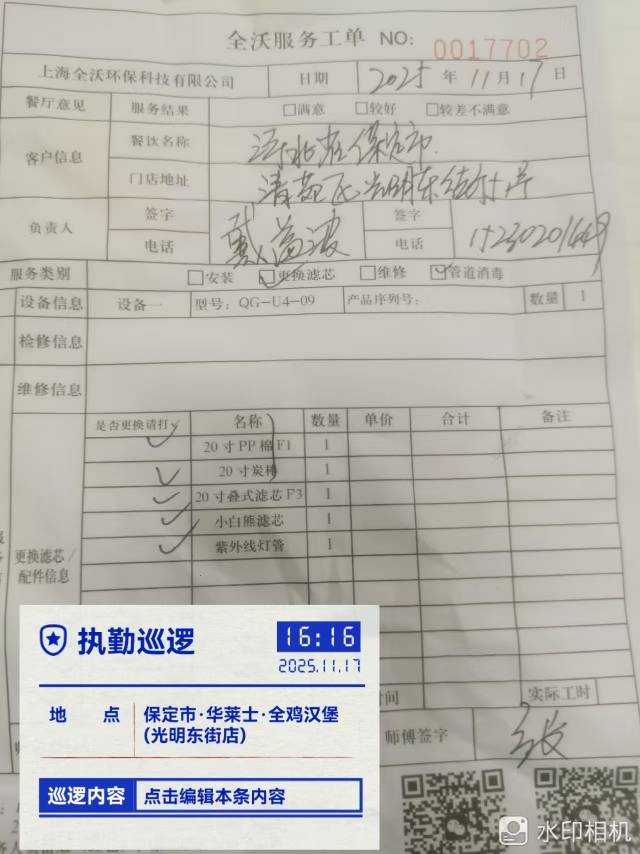 全沃服务工单 NO: 0017702
上海全沃环保科技有限公司 日期 2025 年 11 月 17 日
餐厅意见 服务结果 □满意 □较好 □较差不满意
客户信息 餐饮名称 河北省保定市
门店地址 清苑区光明东街 号
负责人 签字 签字
电话 电话 15230201649
服务类别 □安装 ☑更换滤芯 □维修 ☑管道消毒
设备信息 设备一 型号: QG-U4-09 产品序列号: 数量 1
检修信息
维修信息
是否更换请打√ 名称 数量 单价 合计 备注
✓ 20寸PP棉F1 1
✓ 20寸炭棒 1
✓ 20寸叠式滤芯F3 1
✓ 小白熊滤芯 1
✓ 紫外线灯管 1
更换滤芯/
配件信息
时间 实际工时
师傅签字
执勤巡逻 16:16
2025.11.17
地 点 保定市·华莱士·全鸡汉堡
(光明东街店)
巡逻内容 点击编辑本条内容
水印相机